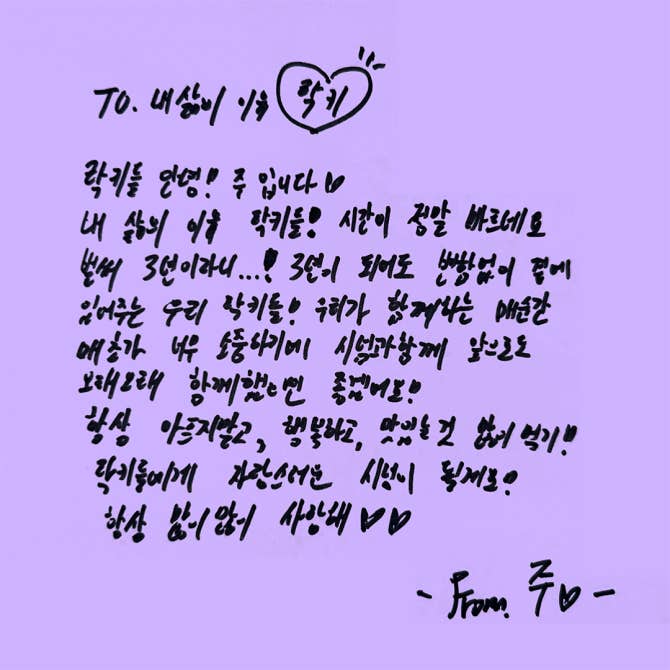 TO. 내 삶의 이유 락키
락키들 안녕! 주 입니다♡
내 삶의 이유 락키들! 시간이 정말 빠르네요
벌써 3년이라니...! 3년이 되어도 변함없이 곁에
있어주는 우리 락키들! 우리가 함께하는 매순간
매초가 너무 소중하기에 시넘과함께 앞으로도
오래오래 함께했으면 좋겠어요!
항상 아프지말고, 행복하고, 맛있는것 많이 먹기!!
락키들에게 자랑스러운 시넘이 될게요!
항상 많이많이 사랑해♡♡
- From. 주♡ -